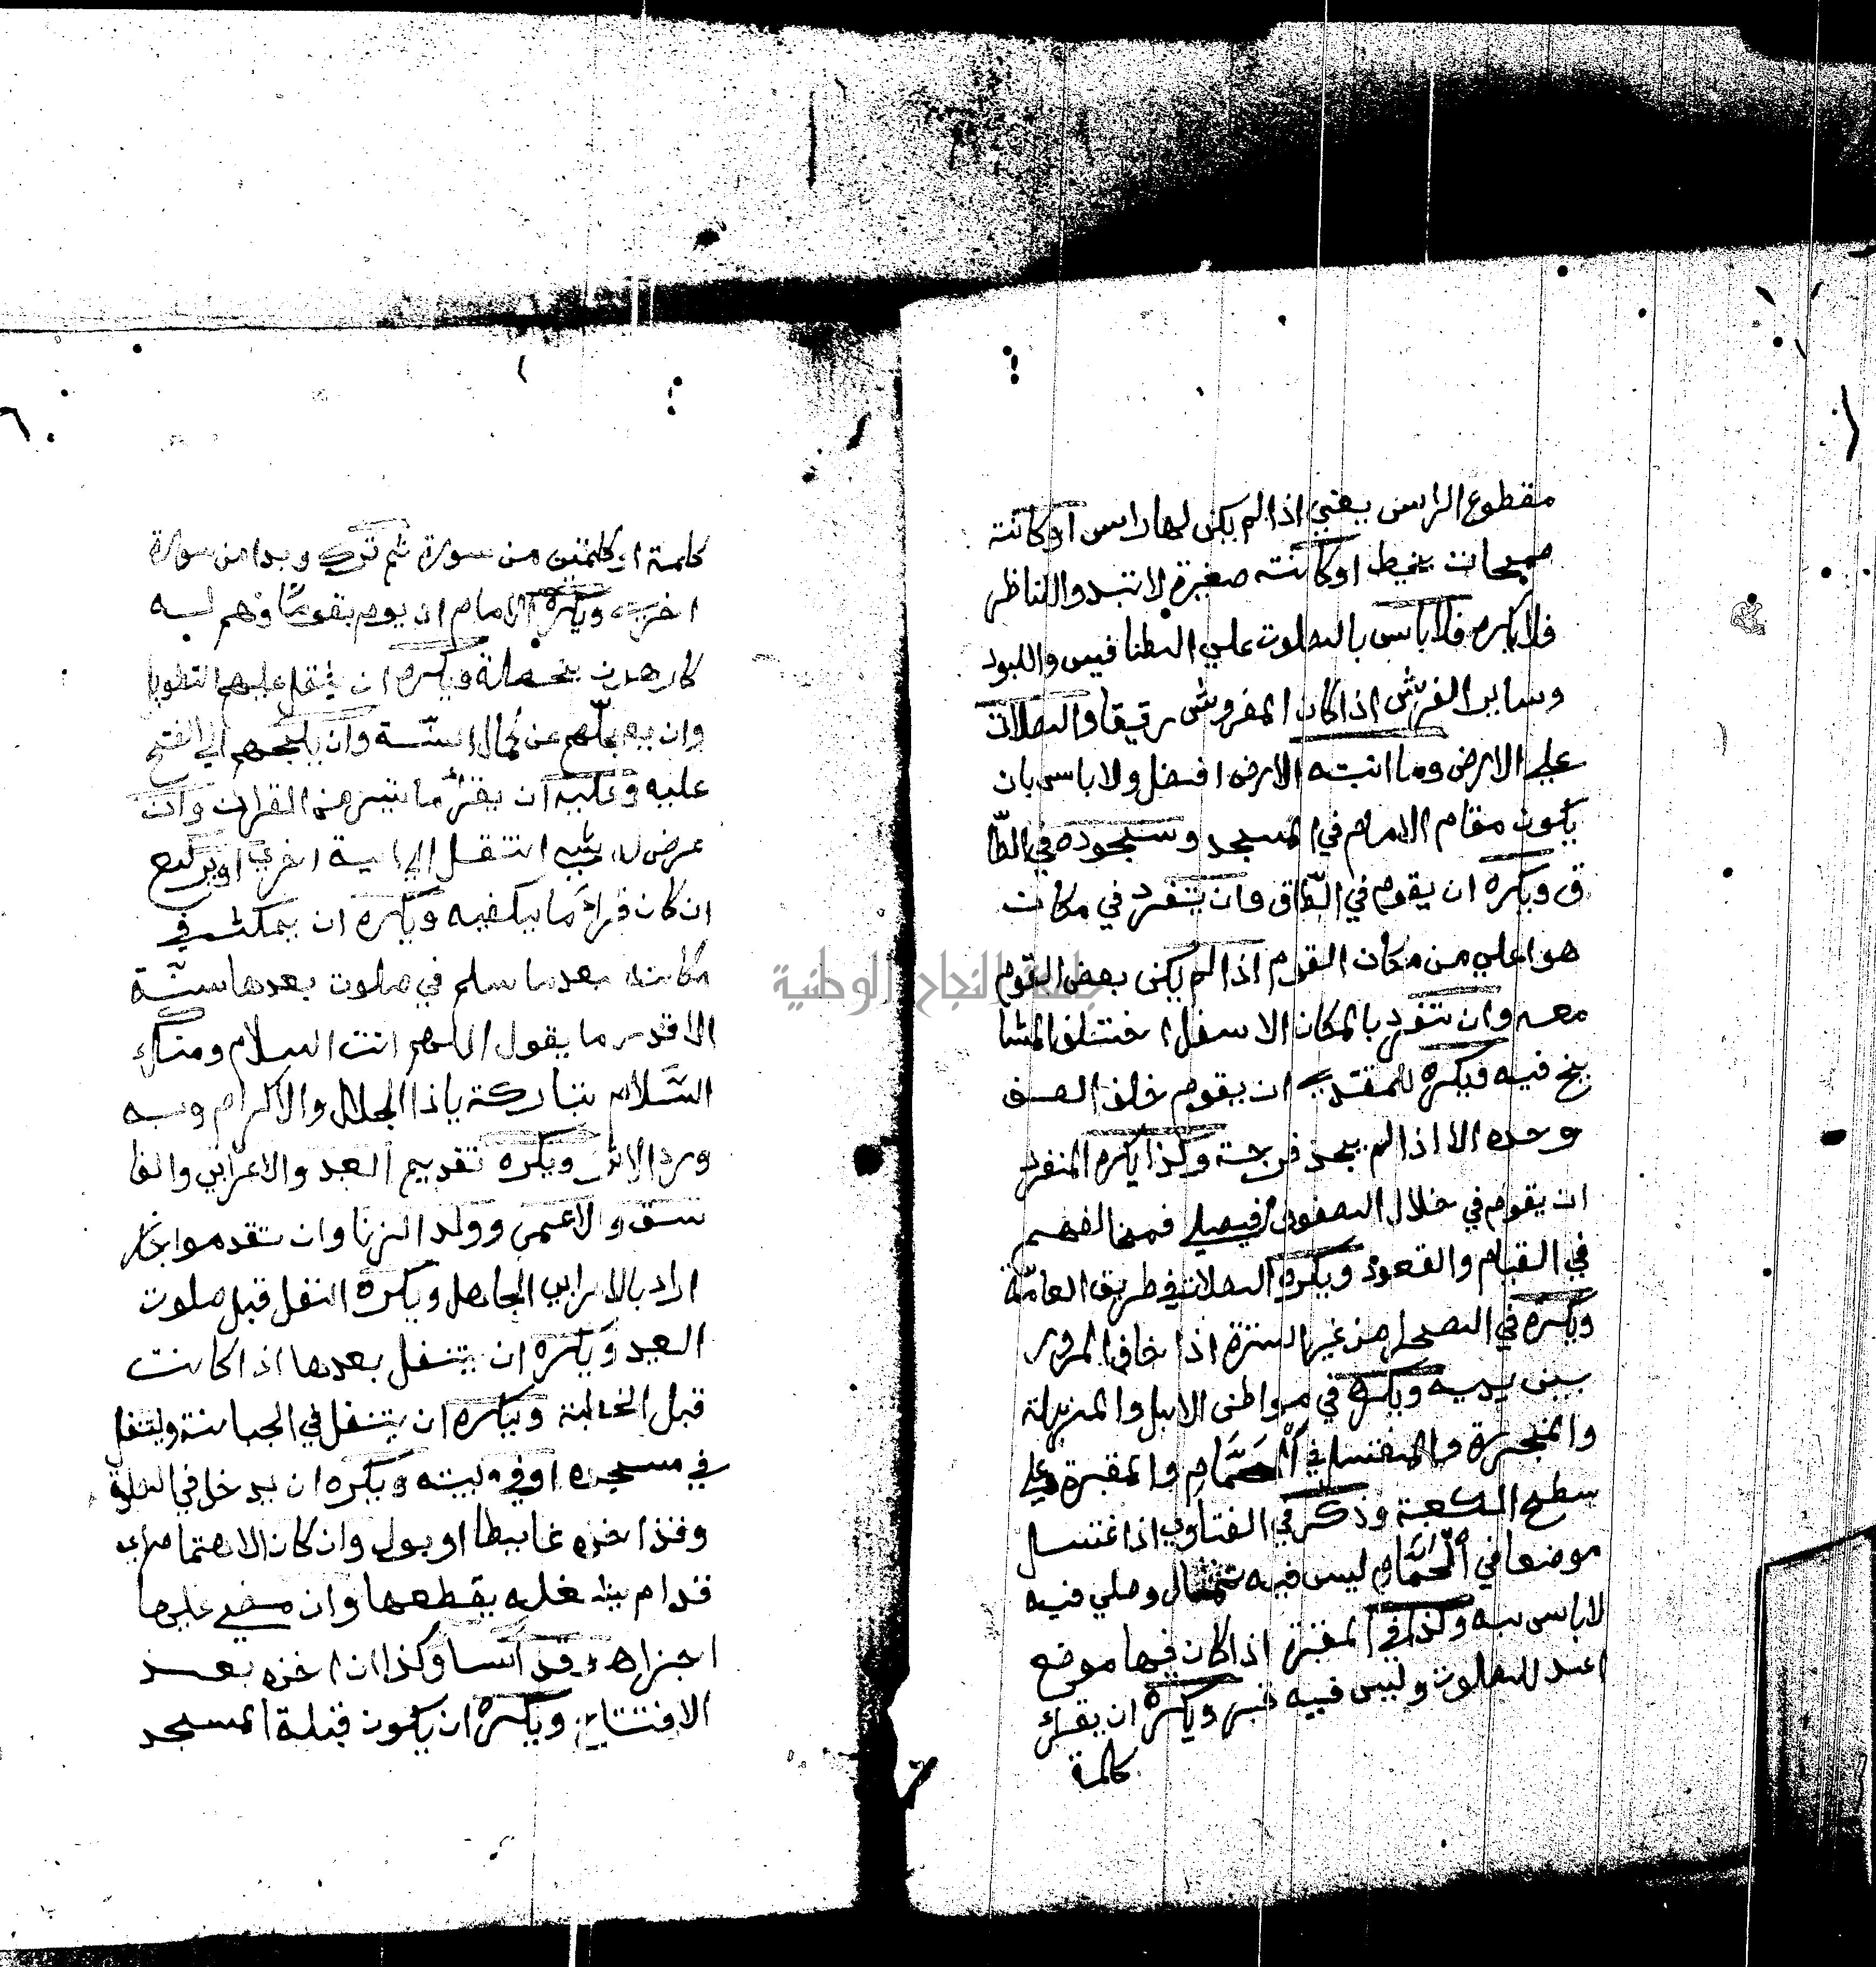 مقطوع الراس يعني اذا لم يكن لها راس او كانته
ممحات بخيط او كانته صغيرة لا تبدو للناظر
فلا يكره فلا باس بالصلوت علي الطنافيس واللبود
وساير الفرش اذا كان المفروش رقيقا والصلات
علي الارض وما انبته الارض افضل ولا باس بان
يكون مقام الامام في المسجد وسجوده في الطّا
ق ويكره ان يقوم في الطّاق وان يتفرد في مكان
هو اعلي من مكان القوم اذا لم يكن بعض القوم
معه وان يتفرد بالمكان الاسفل اختلف المشا
يخ فيه فيكره للمقتدي ان يقوم خلف الصف
وحده الا اذا لم يجد فرجة وكذا يكره المنفرد
ان يقوم في خلال الصفوف فيصلي فمخالفهم
في القيام والقعود ويكره الصلات في طريق العامّة
ويكره في الصحراء من غير السترة اذا خاف المرور
بين يديه ويكره في مواطن الابل والمزبلة
والمجزرة والمغتسل في الحمّام والمقبرة وعلي
سطح الكعبة وذكر في الفتاوي اذا غتسل
موضعا في الحمّام ليس فيه تمثال وصلي فيه
لا باس به وكذا في المقبرة اذا كان فيها موضع
اعد للصلوت وليس فيه قبر ويكره ان يقرائ
كلمة
كلمة او كلمتين من سورة ثم ترك وبدا من سورة
اخري ويكره الامام ان يوم بقوم وهم له
كارهون بخصلة ويكره ان يثقل عليهم التطويل
وان يعجلهم عن كمال السّنة وان يلجهم الي الفتح
عليه وعليه ان يقرأ ما تيسر من القران وان
عرض له شيء انتقل الي اية اخري او يركع
ان كان قراء ما يكفيه ويكره ان يمكث في
مكانه بعد ما سلم في صلوت بعدها سنّة
الا قدر ما يقول اللهم انت السلام ومنك
السّلام تباركة يا ذا الجلال والاكرام وبه
ورد الاثر ويكره تقديم العبد والاعرابي والفا
سق والاعمي وولد الزنا وان تقدموا جاز
اراد بالاعرابي الجاهل ويكره النفل قبل صلوت
العيد ويكره ان يتنفل بعدها اذا كانت
قبل الخطبة ويكره ان يتنفل في الجبانة ويتنفل
في مسجده او في بيته ويكره ان يدخل في الصلوة
وقد اخذه غايطا او بول وان كان الاهتمام
قدام يشغله يقطعها وان مضي عليها
اجزاه وقد اسا وكذا ان اخذه بعد
الافتتاح ويكره ان يكون قبلة المسجد
جامعة النجاح الوطنية